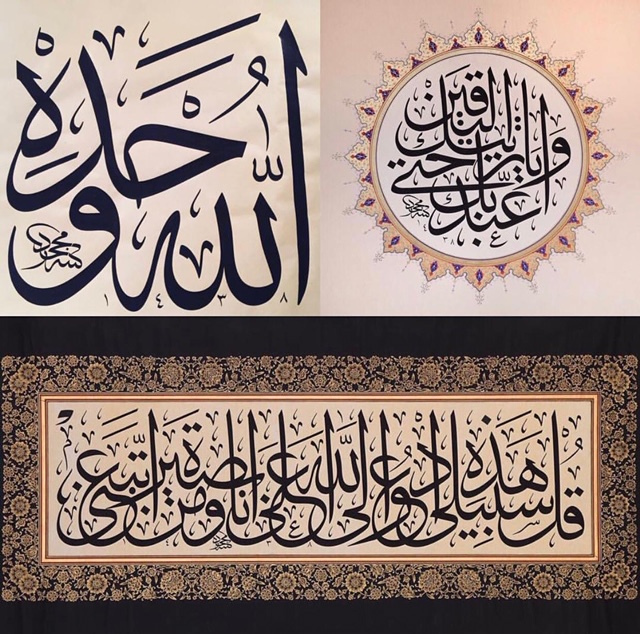 الله وحده
١٤٣٨
واعبد ربك حتى يأتيك اليقين
قل هذه سبيلي ادعوا الى الله على بصيرة انا ومن اتبعني